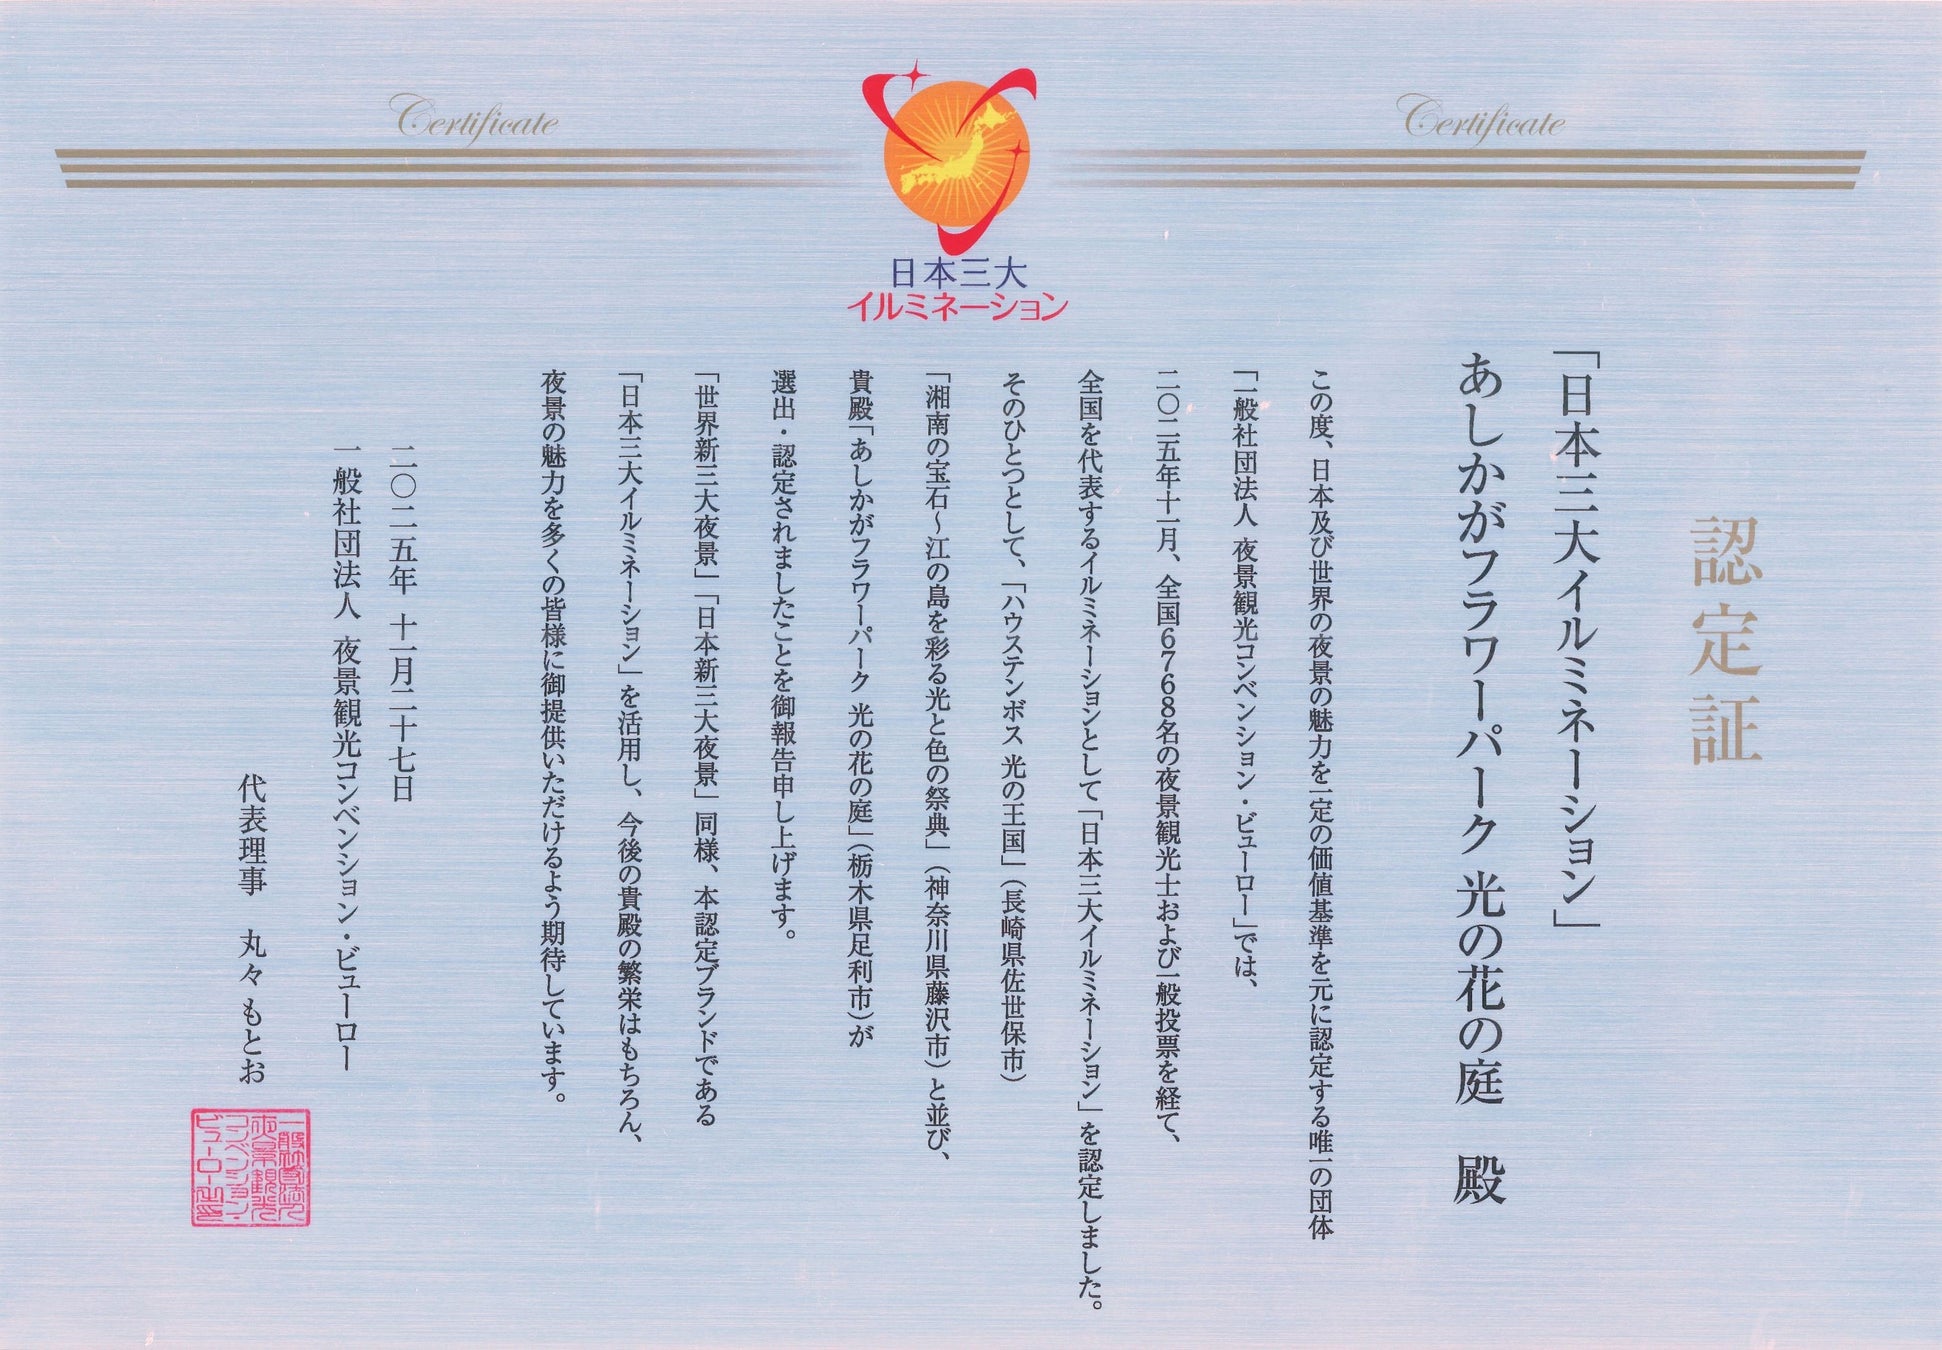 Certificate
Certificate
日本三大
イルミネーション
認定証
「日本三大イルミネーション」
あしかがフラワーパーク 光の花の庭　殿
この度、日本及び世界の夜景の魅力を一定の価値基準を元に認定する唯一の団体
「一般社団法人 夜景観光コンベンション・ビューロー」では、
二〇二五年十一月、全国6768名の夜景観光士および一般投票を経て、
全国を代表するイルミネーションとして「日本三大イルミネーション」を認定しました。
そのひとつとして、「ハウステンボス 光の王国」（長崎県佐世保市）
「湘南の宝石～江の島を彩る光と色の祭典」（神奈川県藤沢市）と並び、
貴殿「あしかがフラワーパーク 光の花の庭」（栃木県足利市）が
選出・認定されましたことを御報告申し上げます。
「世界新三大夜景」「日本新三大夜景」同様、本認定ブランドである
「日本三大イルミネーション」を活用し、今後の貴殿の繁栄はもちろん、
夜景の魅力を多くの皆様に御提供いただけるよう期待しています。
二〇二五年 十一月二十七日
一般社団法人 夜景観光コンベンション・ビューロー
代表理事　丸々 もとお
一般社団法人
夜景観光
コンベンション・
ビューロー之印